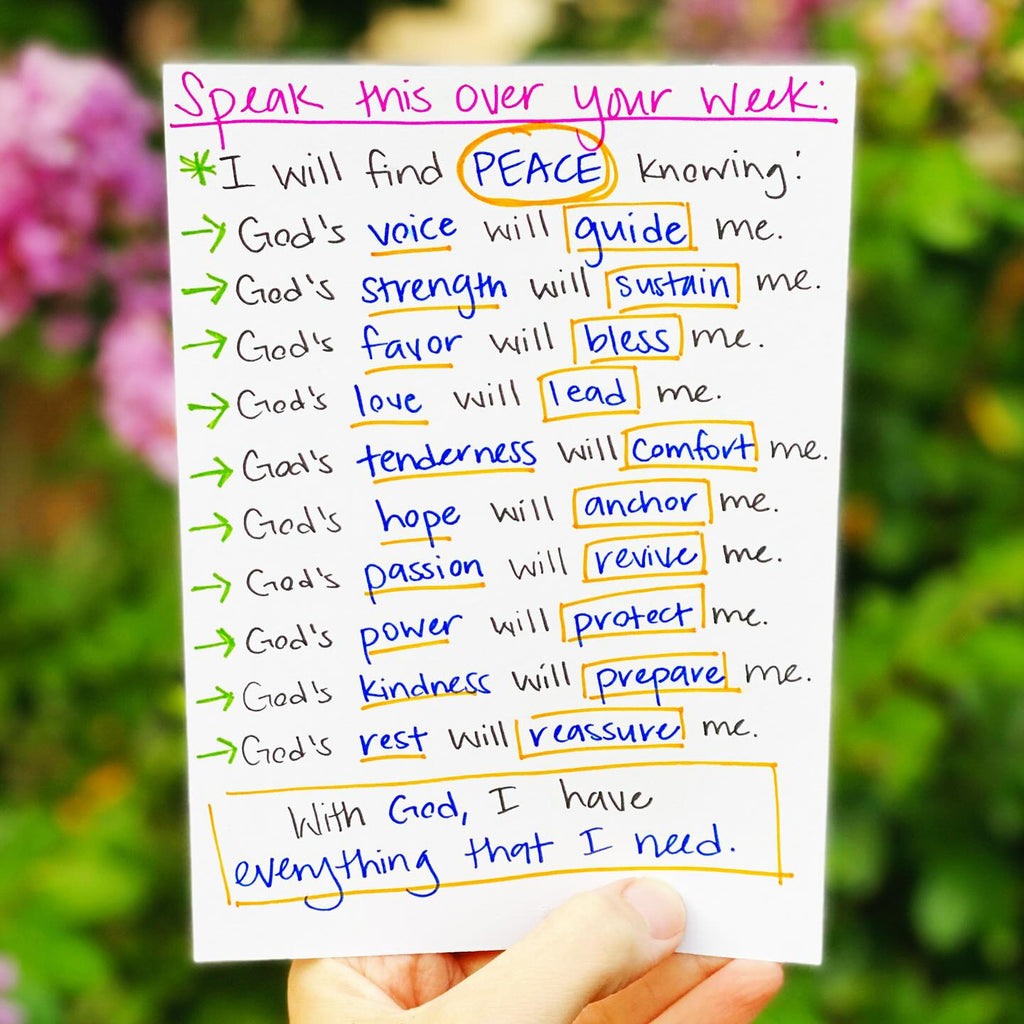 Speak this over your week:
*I will find PEACE knowing:
→ God's voice will guide me.
→ God's strength will sustain me.
→ God's favor will bless me.
→ God's love will lead me.
→ God's tenderness will comfort me.
→ God's hope will anchor me.
→ God's passion will revive me.
→ God's power will protect me.
→ God's kindness will prepare me.
→ God's rest will reassure me.
With God, I have
everything that I need.